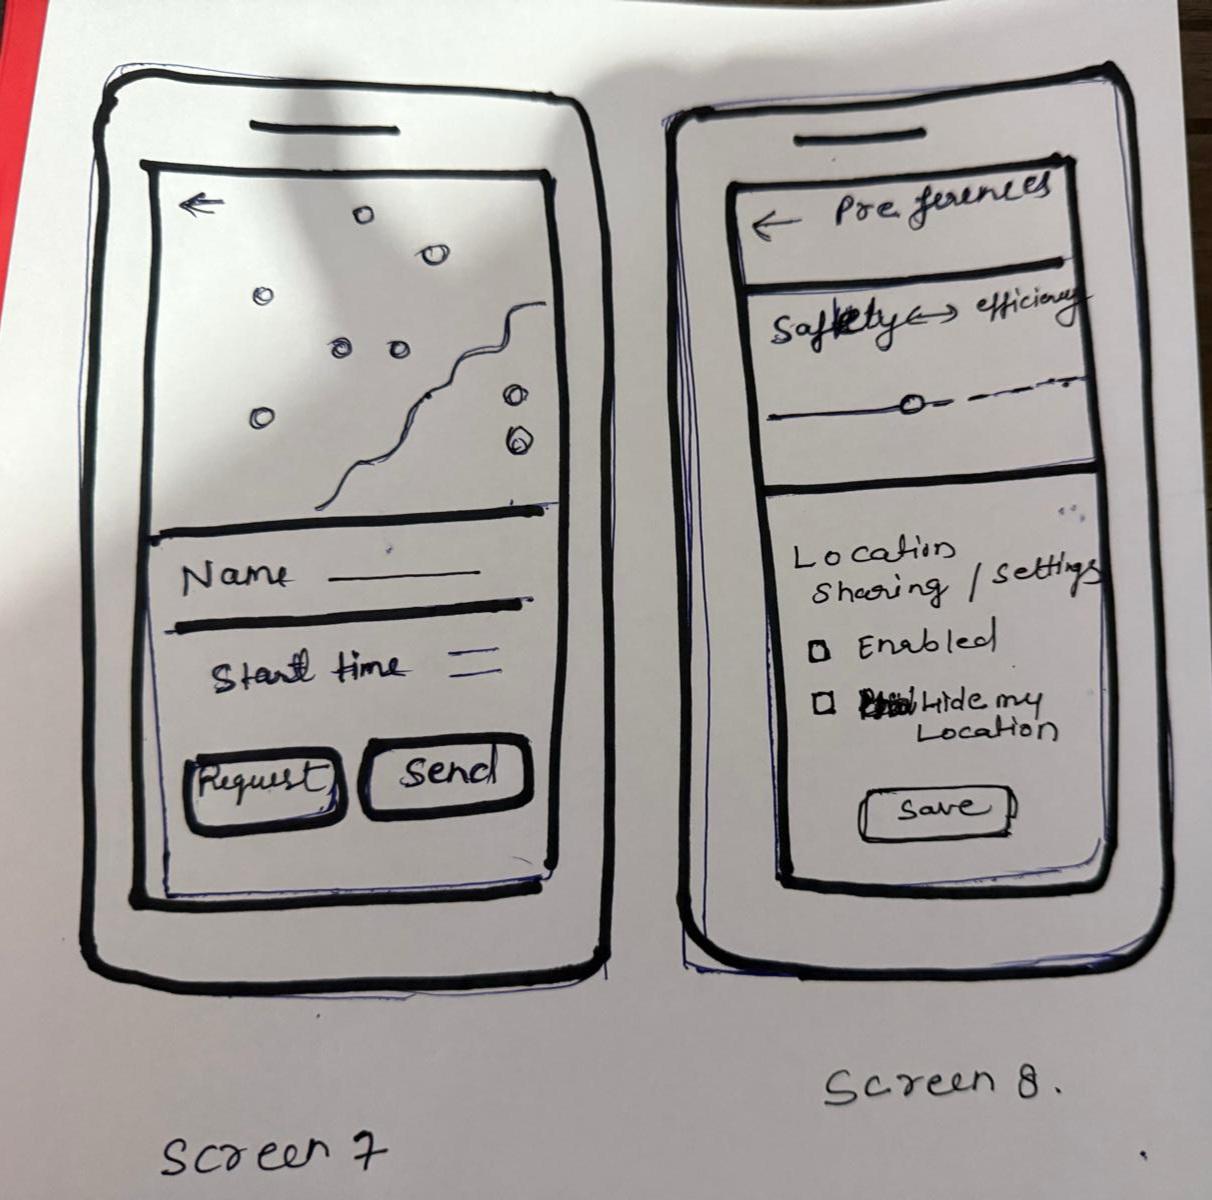 Name
Start time
Request
Send
Screen 7
Preferences
Safety ↔ efficiency
Location
Sharing / Settings
Enabled
Hide my
Location
Save
Screen 8.